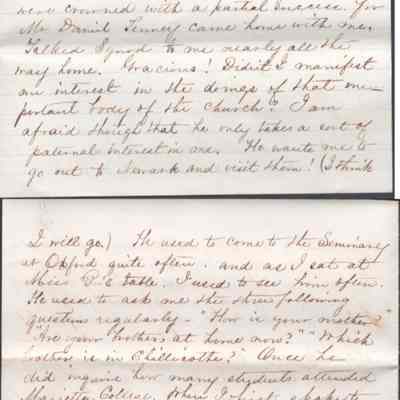 were crowned with a partial success. For
Mr. Daniel Tenney came home with me.
Talked Synod to me nearly all the
way home. Gracious! Didn't I manifest
an interest in the doings of that im-
portant body of the church? I am
afraid though that he only takes a sort of
paternal interest in me. He wants me to
go out to Newark and visit them! (I think
I will go.) He used to come to the Seminary
at Oxford quite often. and as I sat at
Miss P.'s table. I used to see him often.
He used to ask me the three following
questions regularly - "How is your mother?"
"Are your brothers at home now?" "Which
brother is in Chillicothe?" Once he
did inquire how many students attended
Marietta College. When I first spoke to